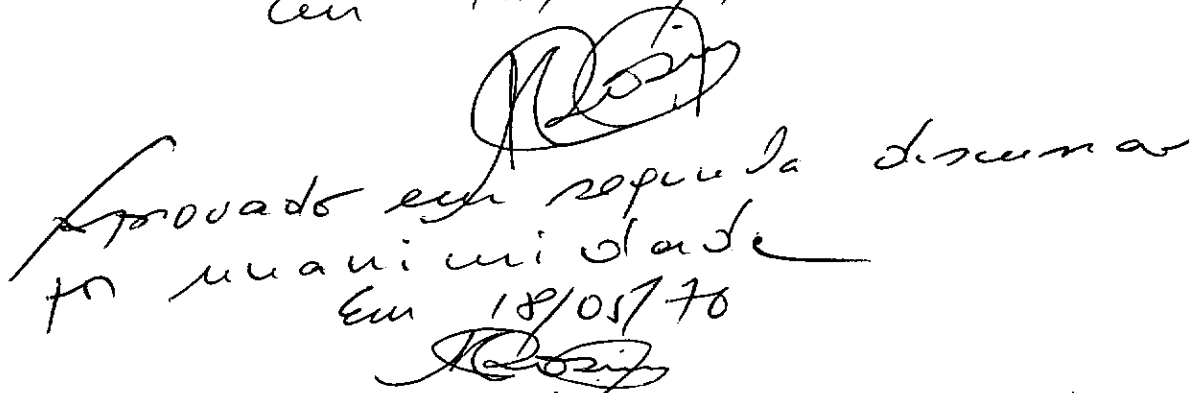 Em
Aprovado em segunda discussão
por unanimidade
Em 18/05/70